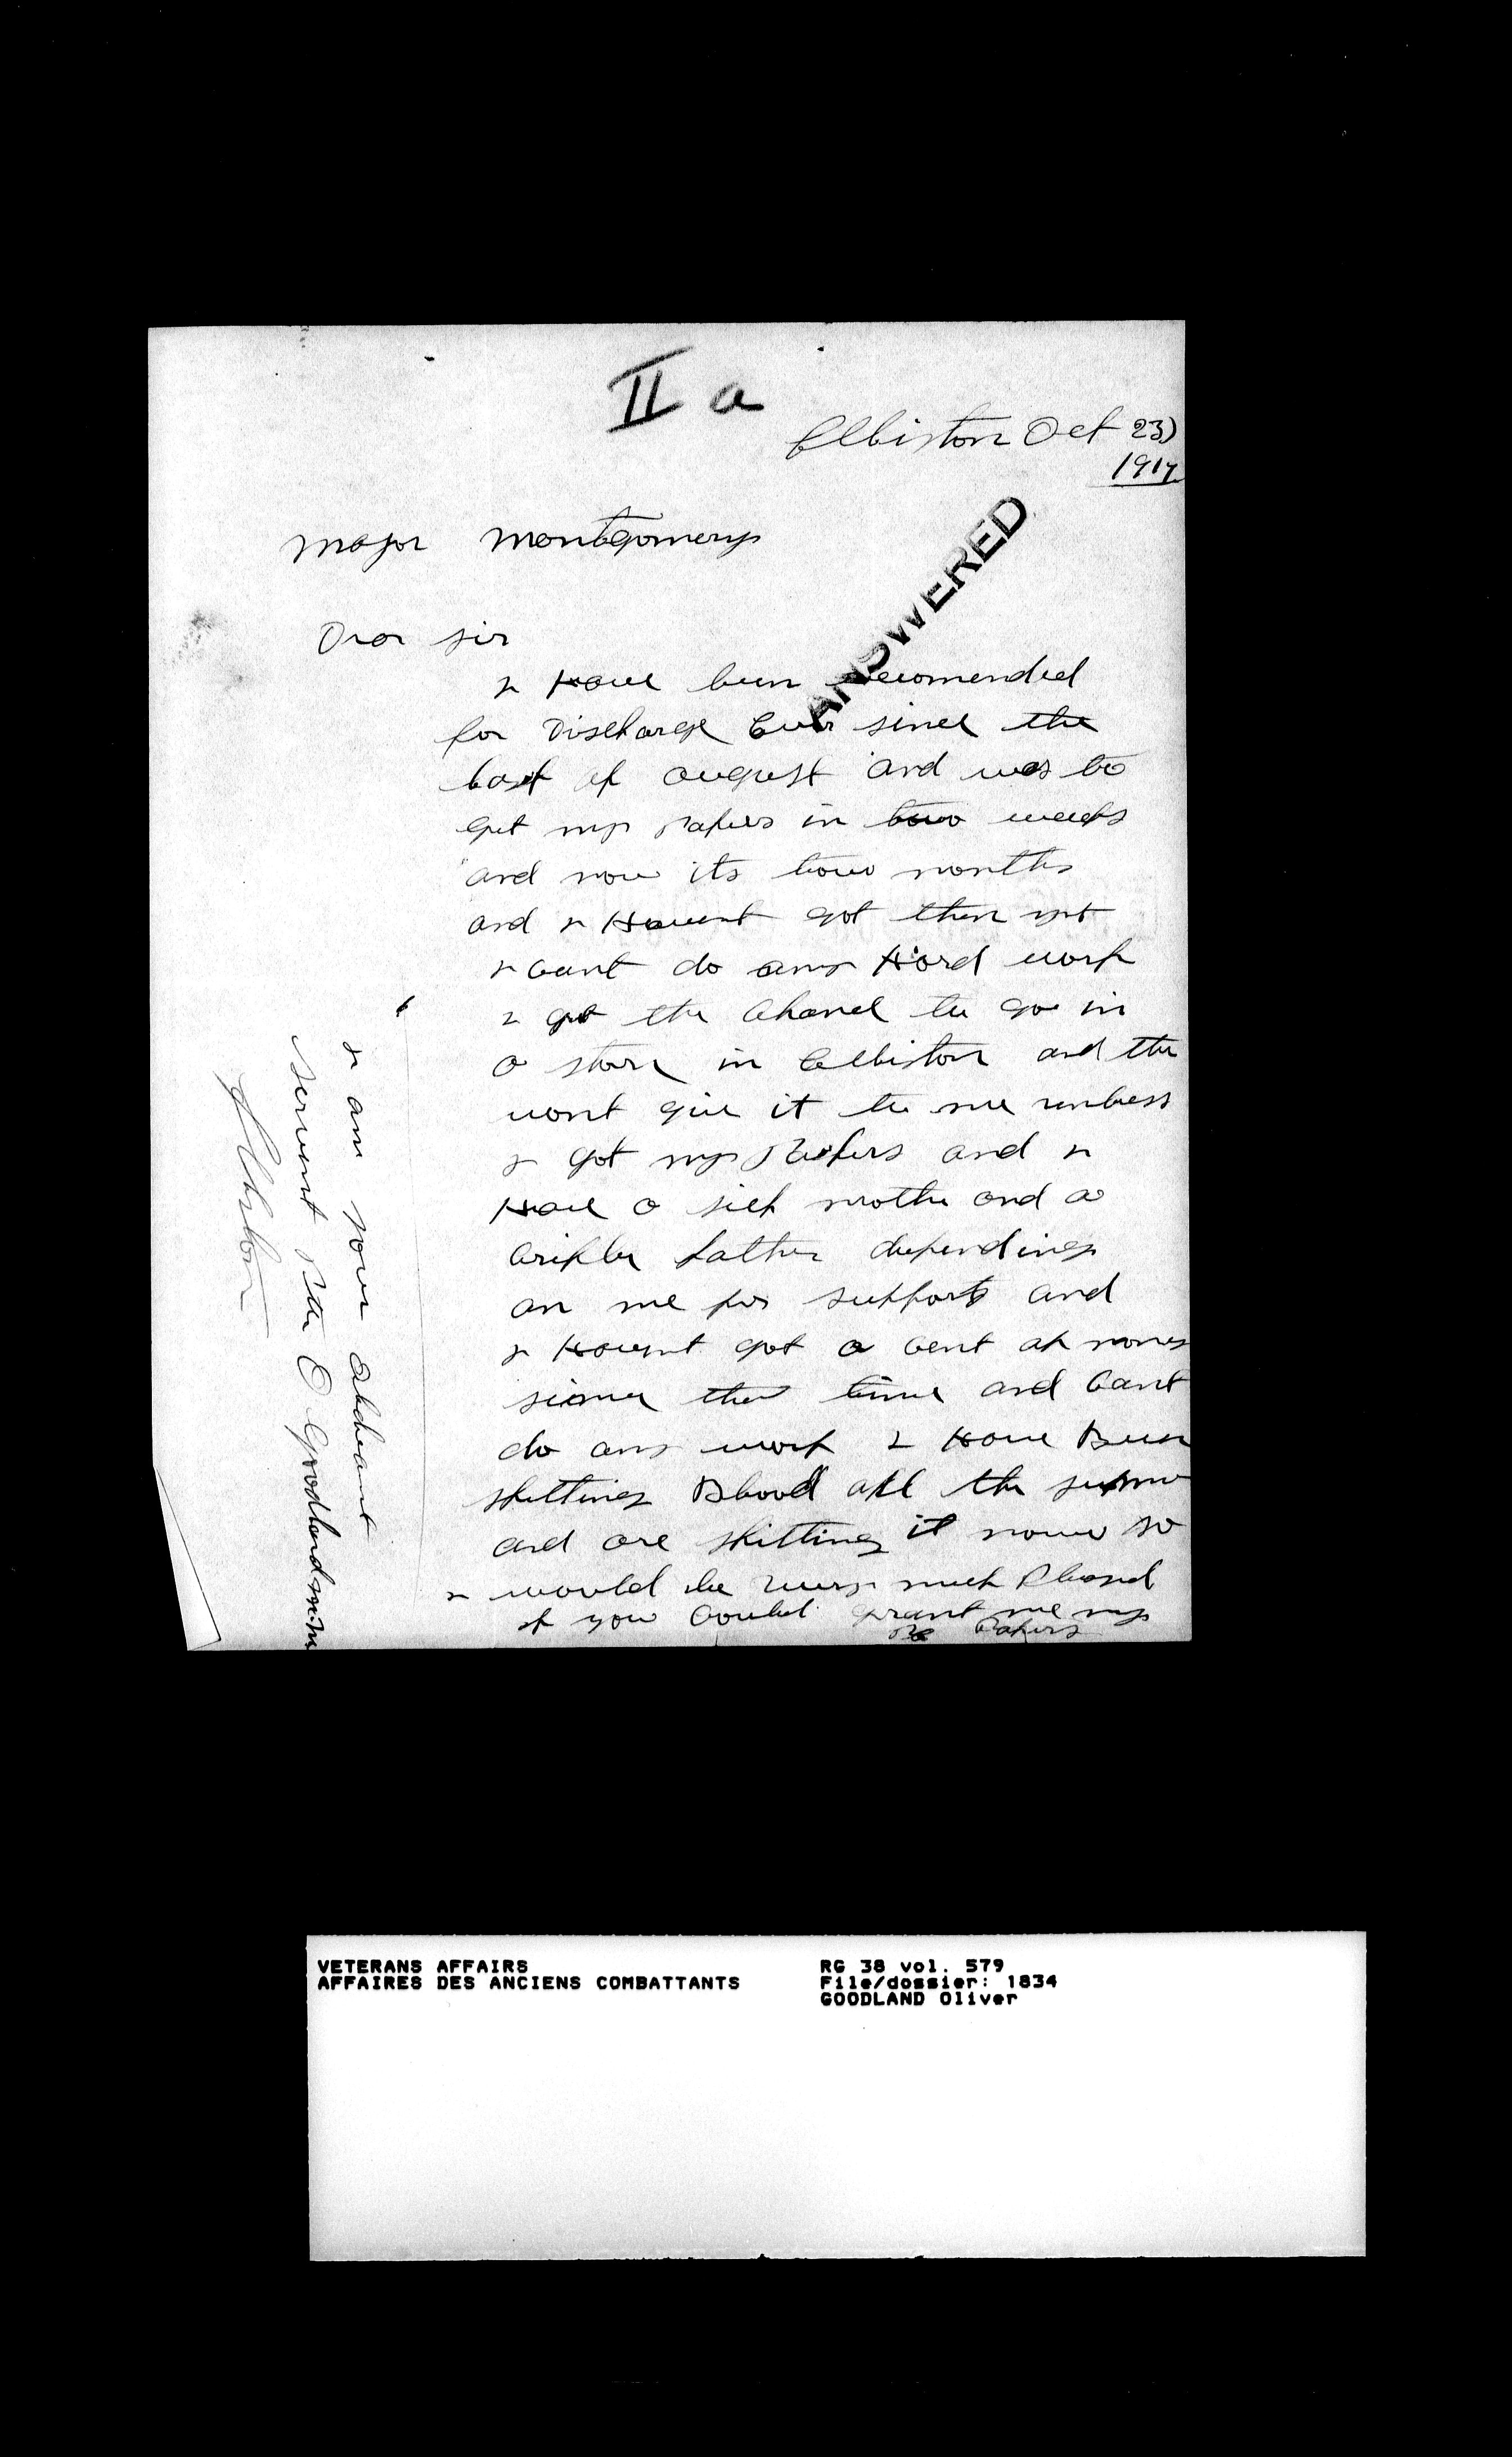 II a
Elliston Oct 23)
1917
Major Montgomery
ANSWERED
Dear sir
I Have been recomended
for Discharge Ever since the
last of august and was to
get my Papers in tow weeks
and now its tow months
and I Havent got then yet
I Cant do any Hard work
I got the Chance to go in
a store in Elliston and the
wont give it to me unless
I got my Papers and I
Have a sick mother and a
Criple father depending
an me for support and
I Havent got a Cent of money
the time and Cant
do any work I Have Been
spitting Blood all the summer
and are spitting it now so
I would be very much Pleased
if you Could grant me my
Papers
I am your Obdeant
servent Pte O Goodland
Elliston
VETERANS AFFAIRS RG 38 vol. 579
AFFAIRES DES ANCIENS COMBATTANTS File/dossier: 1834
GOODLAND Oliver